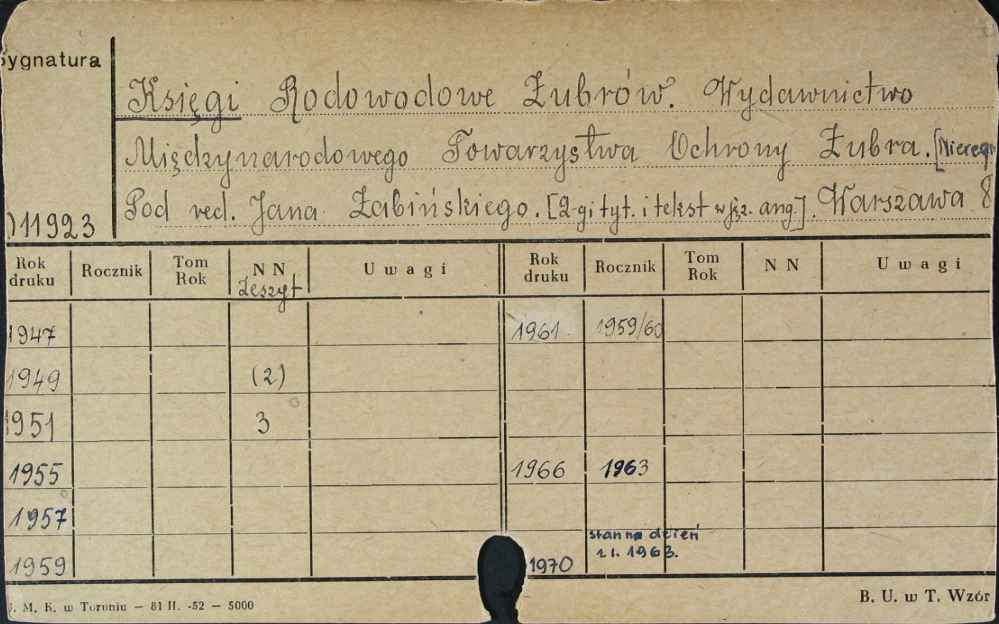 Sygnatura
Księgi Rodowodowe Żubrów. Wydawnictwo
Międzynarodowego Towarzystwa Ochrony Żubra. [Nieregu
Pod red. Jana Żabińskiego. [2-gi tyt. i tekst w jęz. ang]. Warszawa 8
)11923
Rok druku Rocznik Tom Rok NN Zeszyt Uwagi Rok druku Rocznik Tom Rok NN Uwagi
1947 1961 1959/60
1949 (2)
1951 3
1955 1966 1963
1957
stan na dzień
1959 1970 1 I. 1963.
. M. K. w Toruniu — 81 II. -52 — 5000
B. U. w T. Wzór